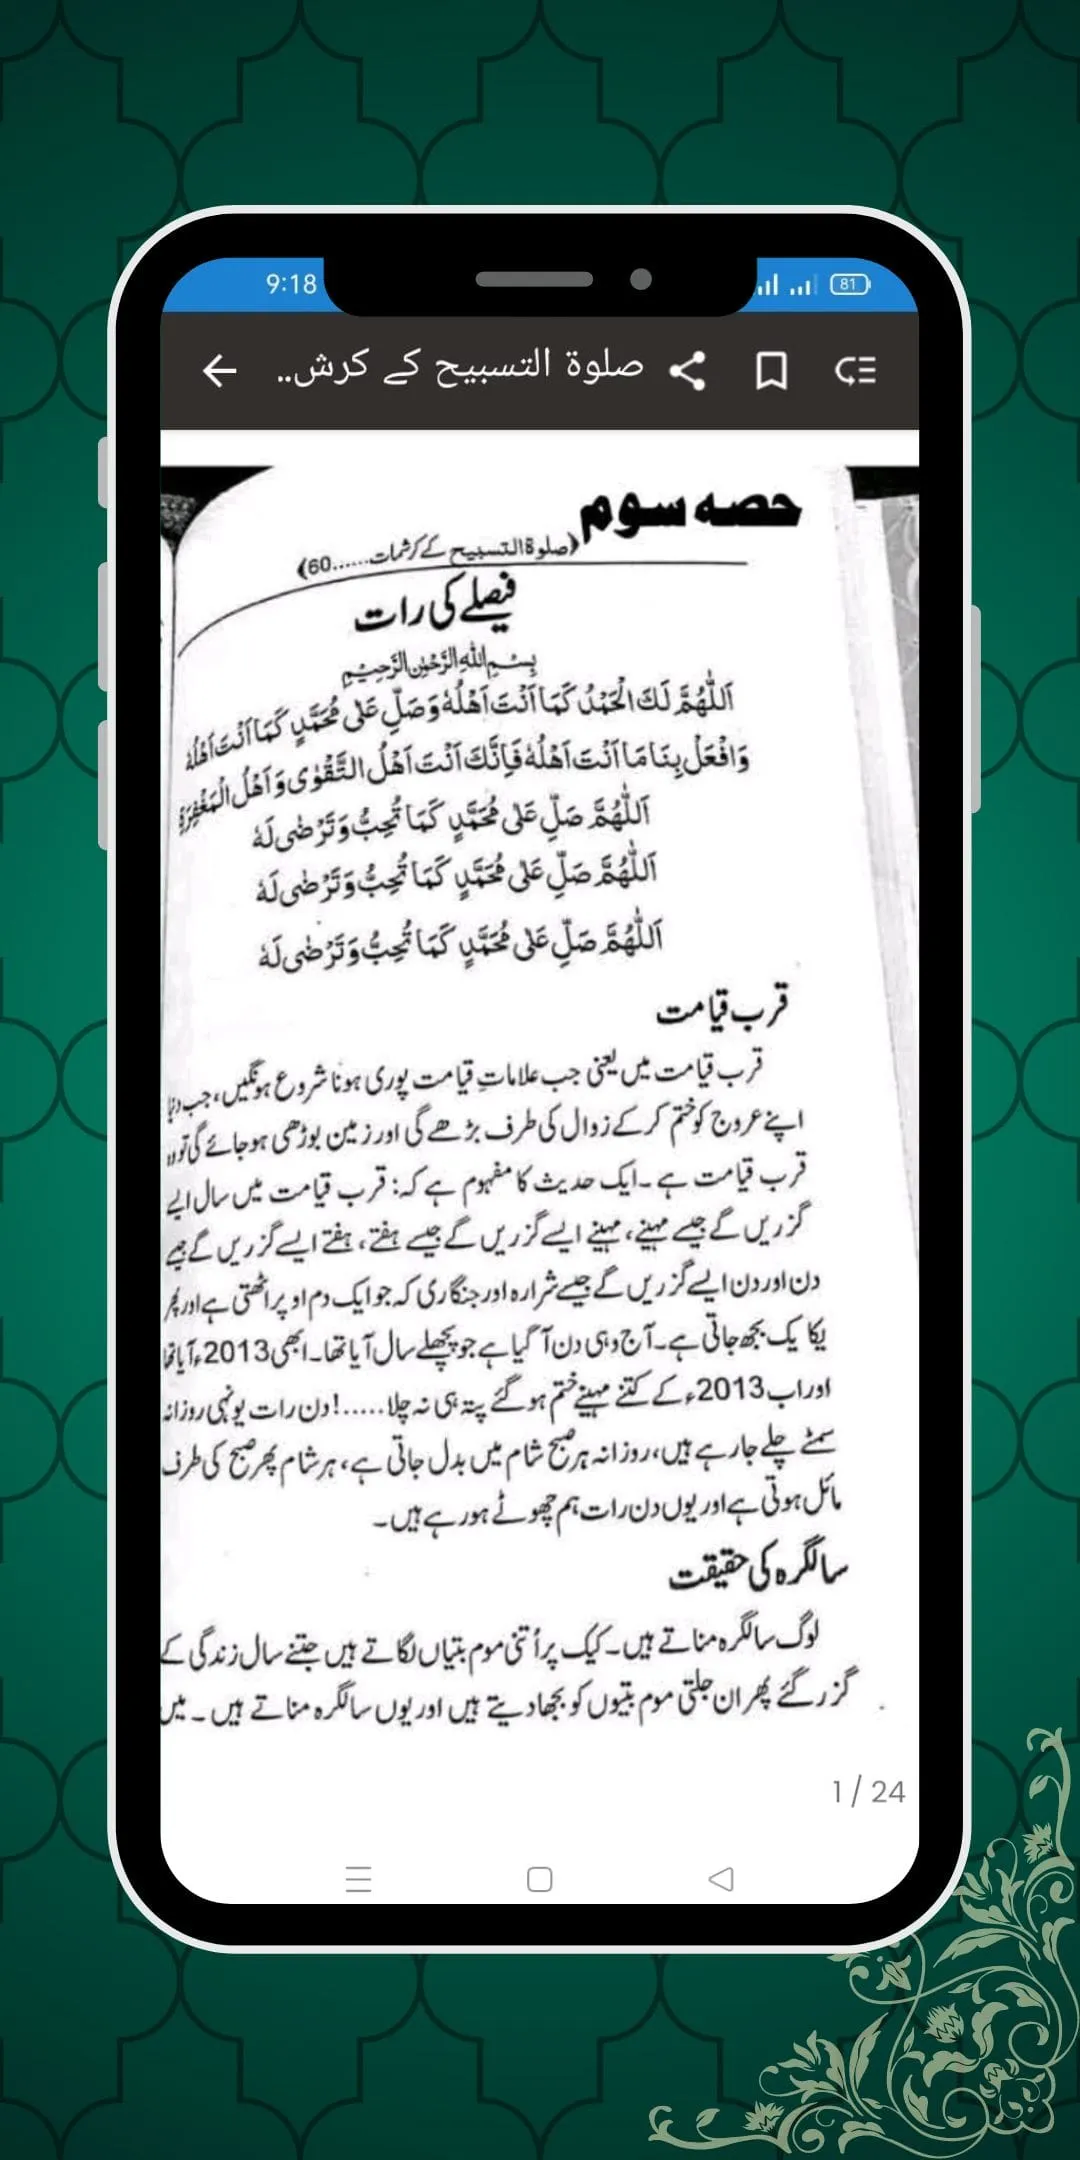 9:18
81
صلوة التسبیح کے کرش..
حصہ سوم
(صلوۃ التسبیح کے کرشمات......60)
فیصلے کی رات
بِسْمِ اللهِ الرَّحْمٰنِ الرَّحِیْمِ
اَللّٰهُمَّ لَكَ الْحَمْدُ كَمَا اَنْتَ اَهْلُهٗ وَصَلِّ عَلٰى مُحَمَّدٍ كَمَا اَنْتَ اَهْلُهٗ
وَافْعَلْ بِنَا مَا اَنْتَ اَهْلُهٗ فَاِنَّكَ اَنْتَ اَهْلُ التَّقْوٰى وَاَهْلُ الْمَغْفِرَةِ
اَللّٰهُمَّ صَلِّ عَلٰى مُحَمَّدٍ كَمَا تُحِبُّ وَتَرْضٰى لَهٗ
اَللّٰهُمَّ صَلِّ عَلٰى مُحَمَّدٍ كَمَا تُحِبُّ وَتَرْضٰى لَهٗ
اَللّٰهُمَّ صَلِّ عَلٰى مُحَمَّدٍ كَمَا تُحِبُّ وَتَرْضٰى لَهٗ
قرب قیامت
قرب قیامت میں یعنی جب علاماتِ قیامت پوری ہونا شروع ہونگیں، جب دنیا
اپنے عروج کو ختم کر کے زوال کی طرف بڑھے گی اور زمین بوڑھی ہو جائے گی تو وہ
قرب قیامت ہے۔ ایک حدیث کا مفہوم ہے کہ: قرب قیامت میں سال ایسے
گزریں گے جیسے مہینے، مہینے ایسے گزریں گے جیسے ہفتے، ہفتے ایسے گزریں گے جیسے
دن اور دن ایسے گزریں گے جیسے شرارہ اور چنگاری کہ جو ایک دم اوپر اٹھتی ہے اور پھر
یکا یک بجھ جاتی ہے۔ آج وہی دن آ گیا ہے جو پچھلے سال آیا تھا۔ ابھی 2013ء آیا تھا
اور اب 2013ء کے کتنے مہینے ختم ہو گئے پتہ ہی نہ چلا.....! دن رات یونہی روزانہ
سمٹے چلے جا رہے ہیں، روزانہ ہر صبح شام میں بدل جاتی ہے، ہر شام پھر صبح کی طرف
مائل ہوتی ہے اور یوں دن رات ہم چھوٹے ہو رہے ہیں۔
سالگرہ کی حقیقت
لوگ سالگرہ مناتے ہیں۔ کیک پر اُتنی موم بتیاں لگاتے ہیں جتنے سال زندگی کے
گزر گئے پھر ان جلتی موم بتیوں کو بجھا دیتے ہیں اور یوں سالگرہ مناتے ہیں۔ میں
1 / 24